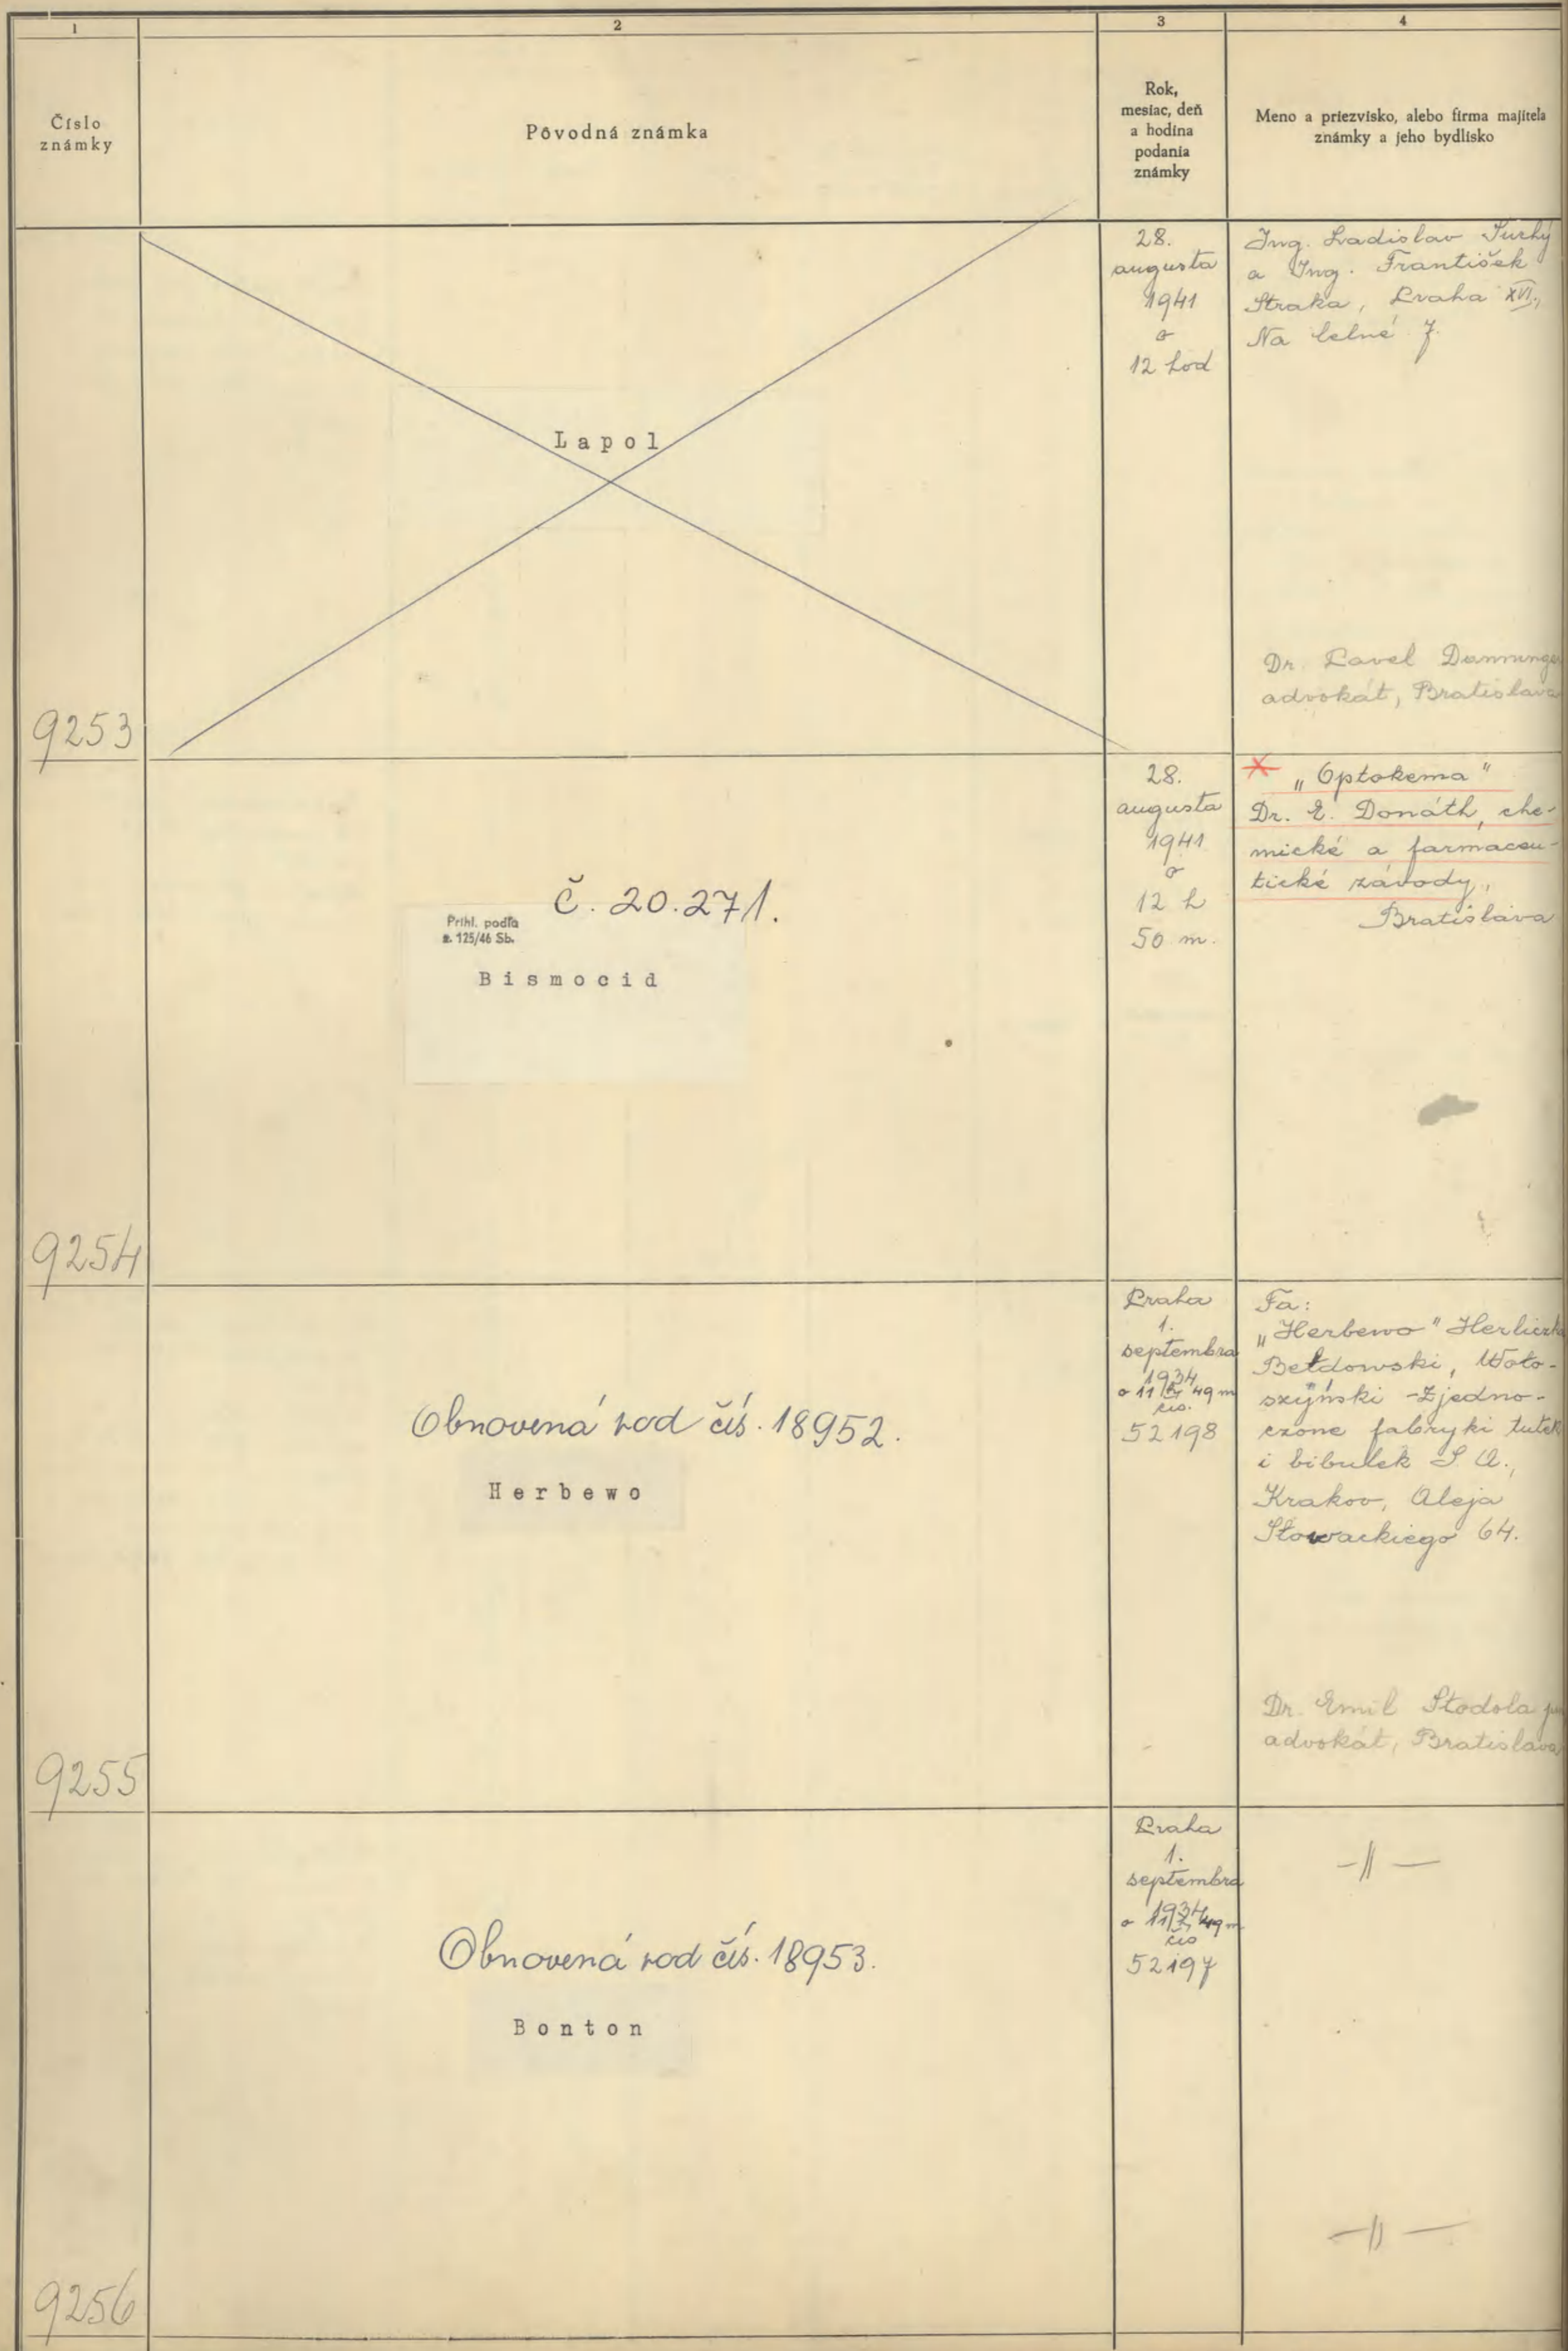 1
2
3
4
Číslo
známky
Pôvodná známka
Rok,
mesiac, deň
a hodina
podania
známky
Meno a priezvisko, alebo firma majiteľa
známky a jeho bydlisko
9253
Lapol
28.
augusta
1941
o
12 hod
Ing. Ladislav Suchý
a Ing. František
Straka, Praha XVI.,
Na 7.
Dr. Pavel
advokát, Bratislava
9254
č. 20.271.
Prihl. podľa
z. 125/46 Sb.
Bismocid
28.
augusta
1941
o
12 h
50 m.
"Optokema"
Dr. E. Donáth, che-
mické a farmaceu-
tické závody,
Bratislava
9255
Obnovená pod čís. 18952.
Herbewo
Praha
1.
septembra
1934
o 11 h 49 m
čís.
52198
Fa:
"Herbewo" Herliczka
Bełdowski, Woło-
szyński - Zjedno-
czone fabryki tutek
i bibułek S. A.,
Krakov, Aleja
Słowackiego 64.
Dr. Emil Stodola jun
advokát, Bratislava
9256
Obnovená pod čís. 18953.
Bonton
Praha
1.
septembra
1934
o 11 h 49 m
čís
52197
-||-
-||-